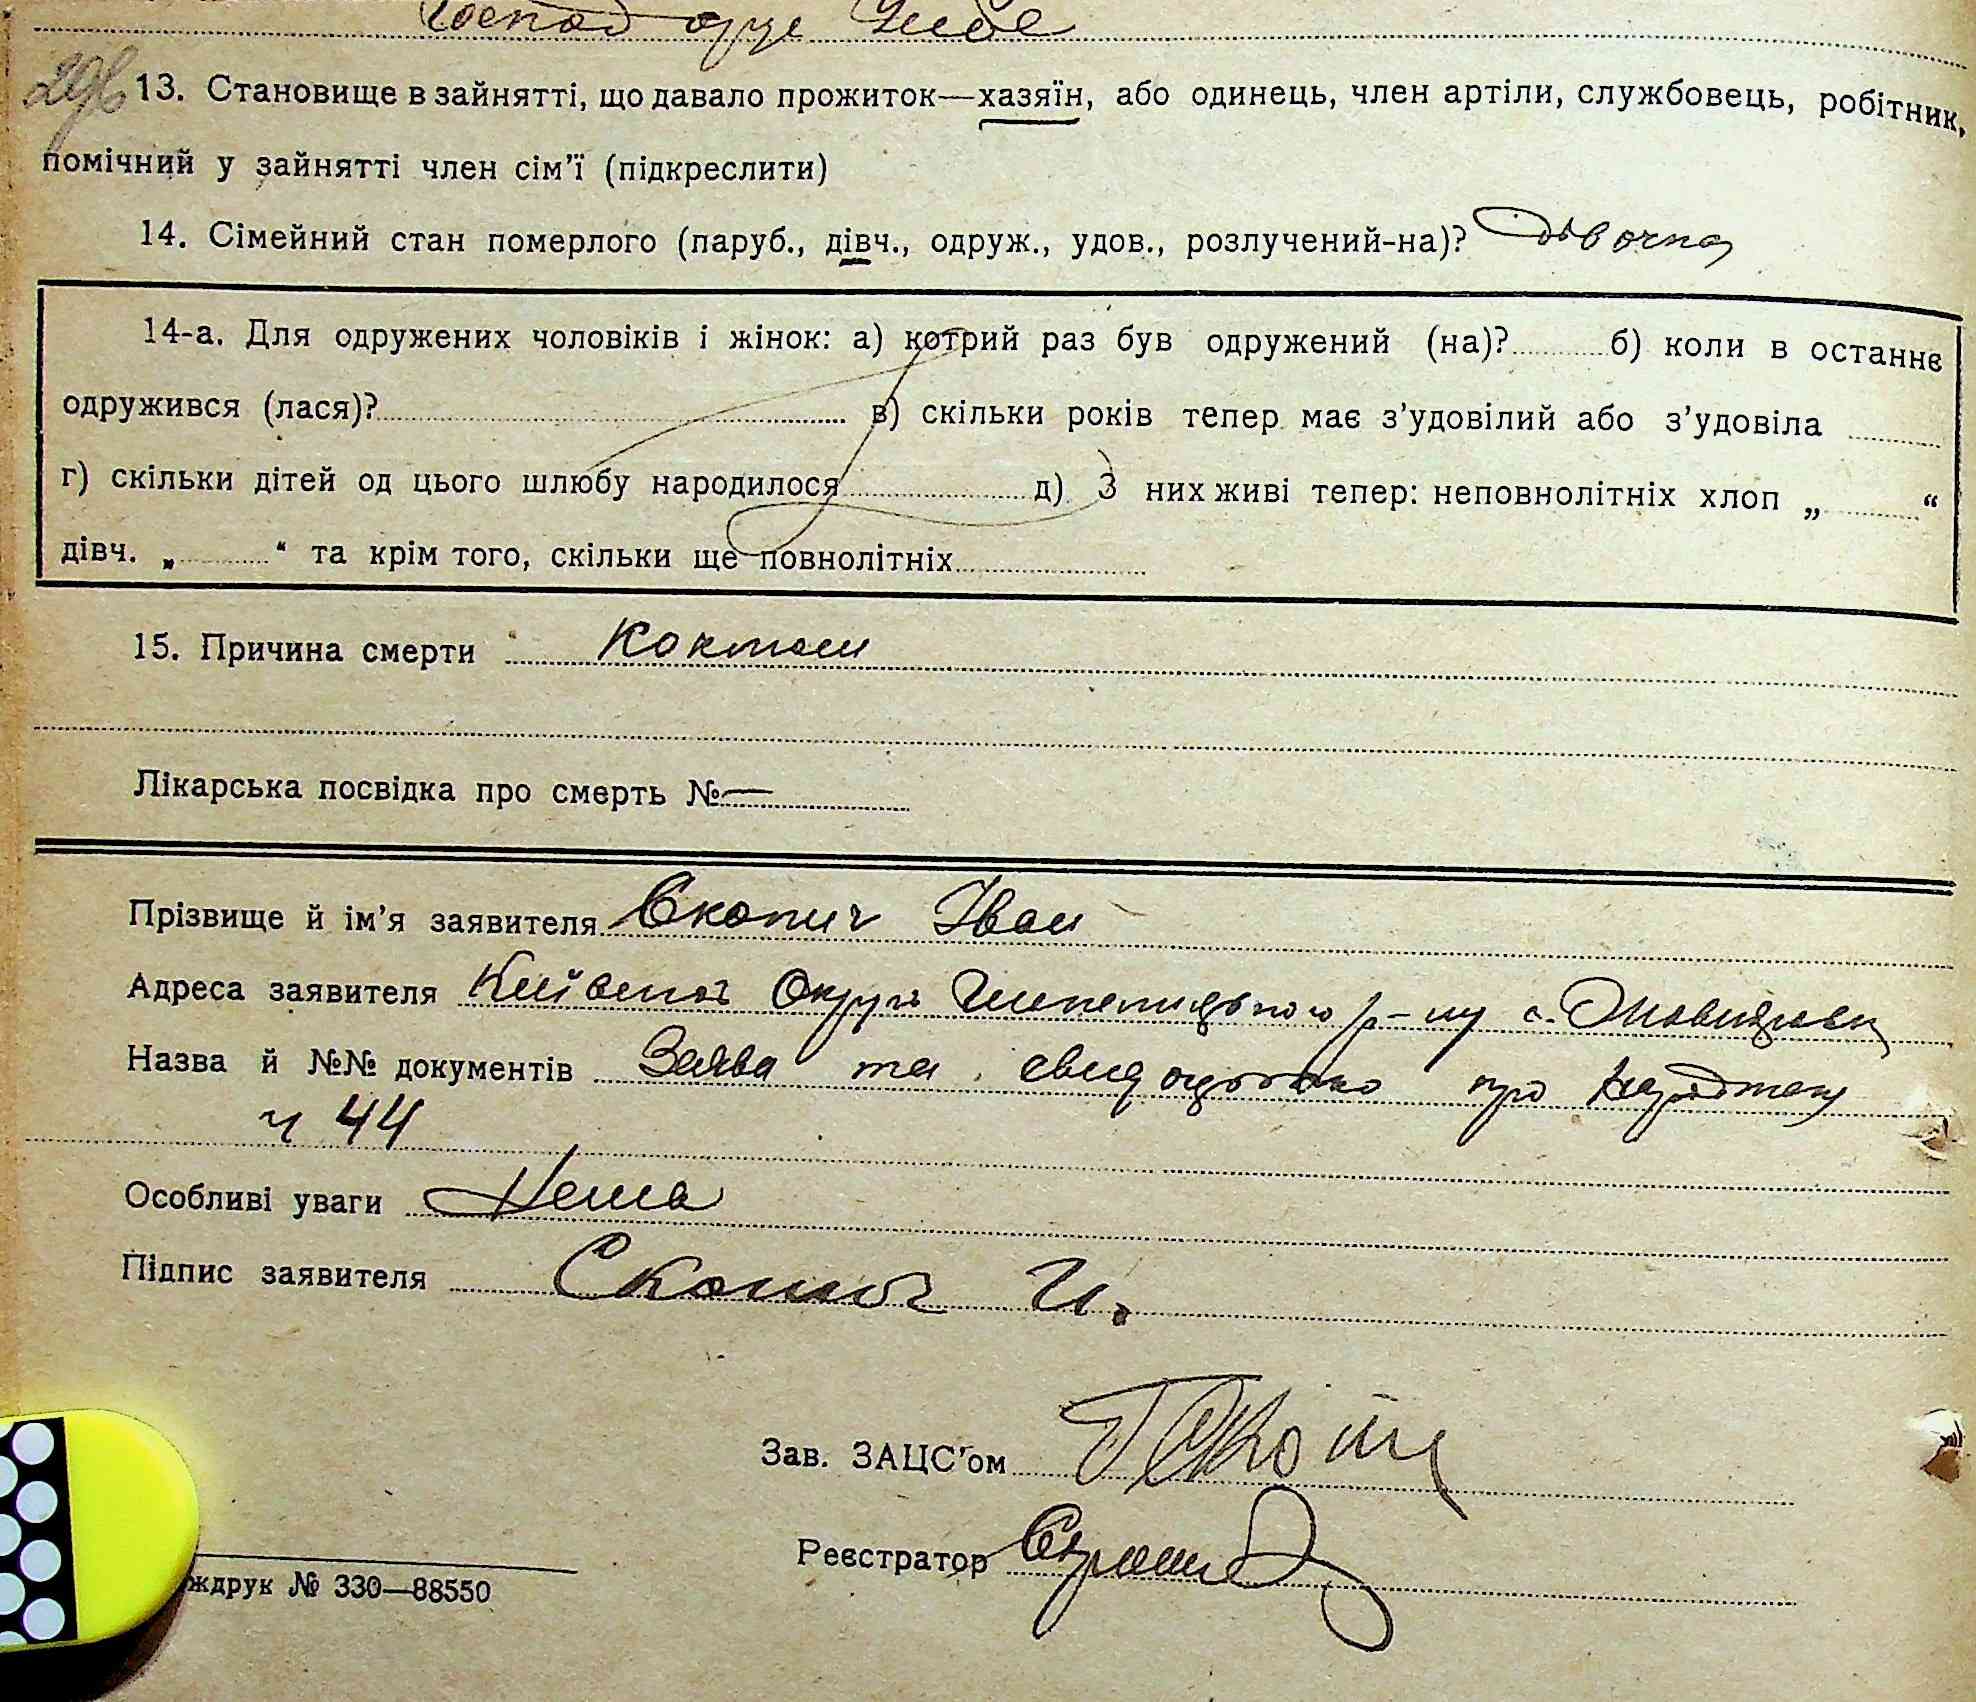 Господ орце
296 13. Становище в зайнятті, що давало прожиток—хазяїн, або одинець, член артіли, службовець, робітник,
помічний у зайнятті член сім'ї (підкреслити)
14. Сімейний стан померлого (паруб., дівч., одруж., удов., розлучений-на)? Дівочка
14-а. Для одружених чоловіків і жінок: а) котрий раз був одружений (на)? б) коли в останнє
одружився (лася)? в) скільки років тепер має з'удовілий або з'удовіла
г) скільки дітей од цього шлюбу народилося д) З них живі тепер: неповнолітніх хлоп „ “
дівч. „ “ та крім того, скільки ще повнолітніх
15. Причина смерти Коклюш
Лікарська посвідка про смерть № —
Прізвище й ім'я заявителя Скопич Іван
Адреса заявителя Київської Округи р-ну с.
Назва й №№ документів Заява та свидоцтво про
ч 44
Особливі уваги Нема
Підпис заявителя Скопич И.
Зав. ЗАЦС'ом
Реєстратор
ждрук № 330—88550